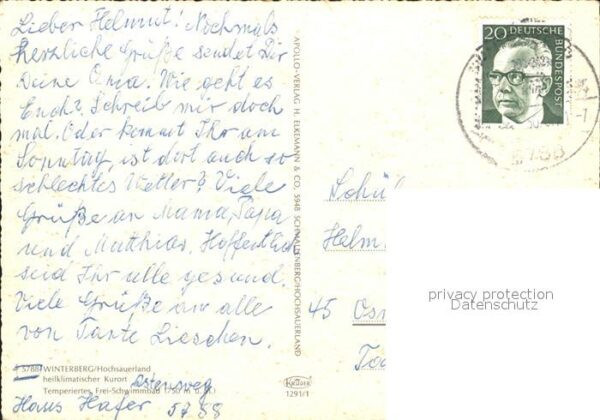 Lieber Helmut! Nochmals
herzliche Grüße sendet Dir
Deine Oma. Wie geht es
Euch? Schreib mir doch
mal. Oder kommt Ihr am
Sonntag, ist dort auch so
schlechtes Wetter? Viele
Grüße an Mama, Papa
und Matthias. Hoffentlich
seid Ihr alle gesund.
Viele Grüße an alle
von Tante Lieschen.
5788 WINTERBERG/Hochsauerland
heilklimatischer Kurort
Temperiertes Frei-Schwimmbad
Haus Hafer 5788
APOLLO-VERLAG H. ELKEMANN & CO. 5948 SCHMALLENBERG/HOCHSAUERLAND
KRÜGER
1291/1
20 DEUTSCHE
BUNDESPOST
Schül
Helm
45 Osn
privacy protection
Datenschutz